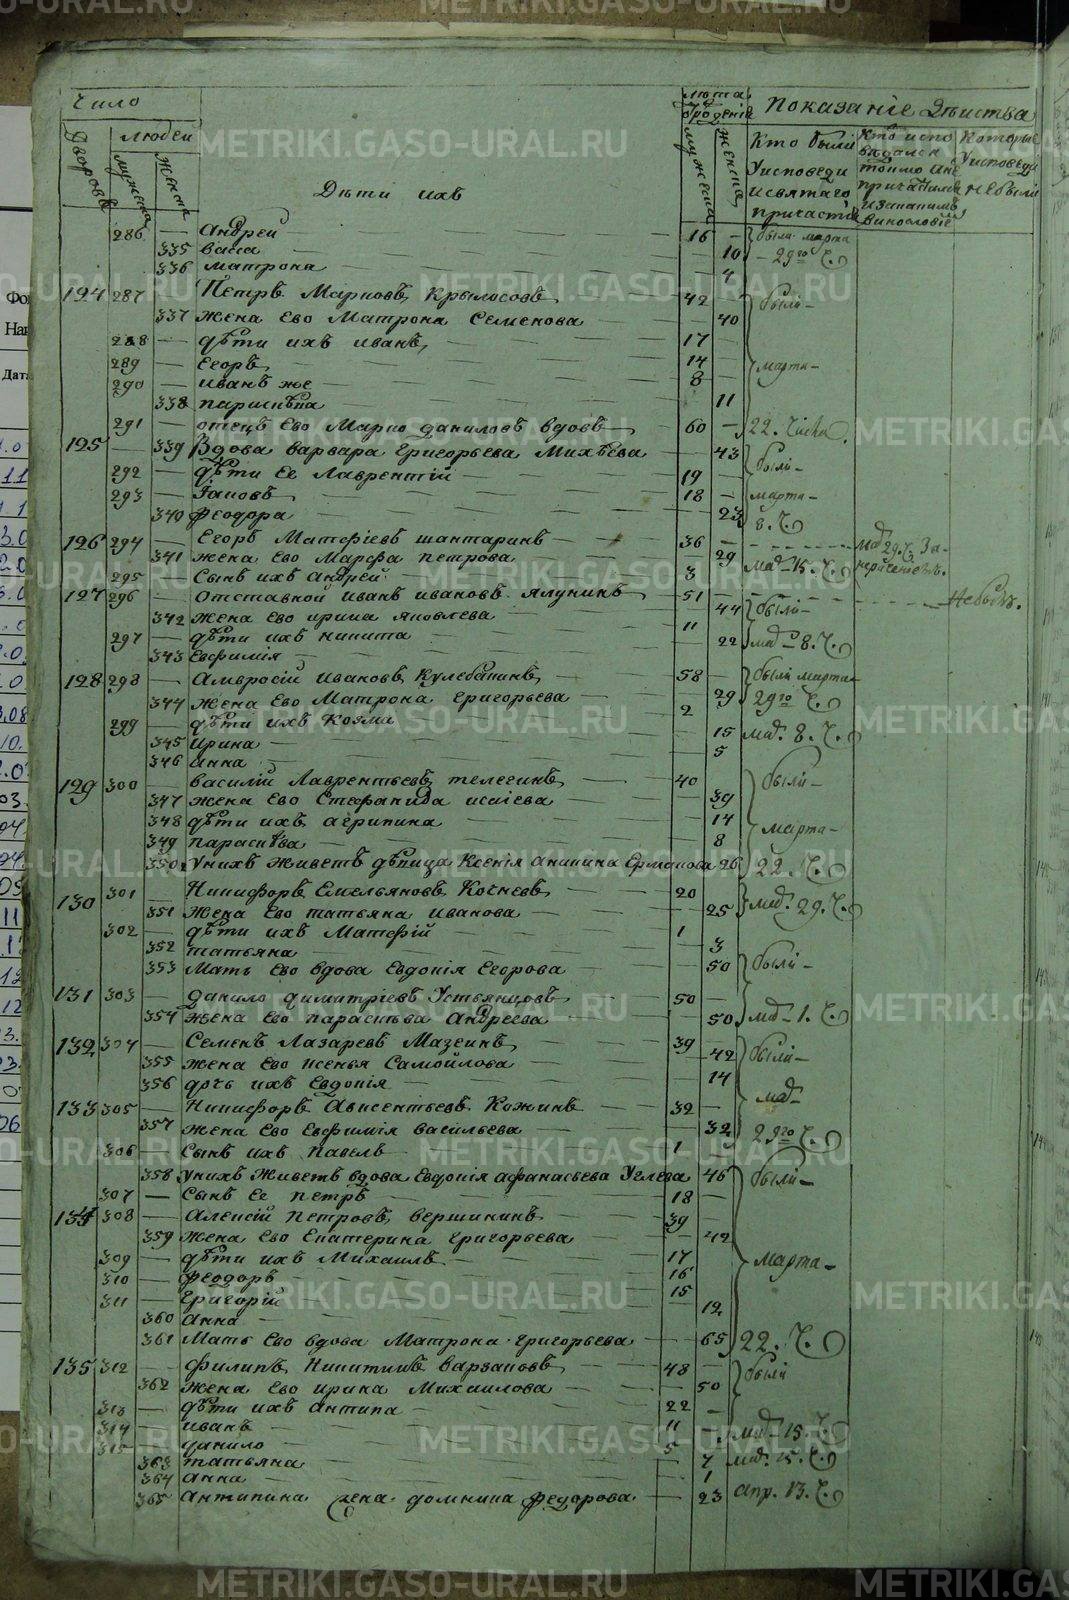 METRIKI.GASO-URAL.RU
Число
Дворовъ
Людей
Мужеска
Женска
Дѣти ихъ
Лѣта
Мужеска
Женска
Показаніе Дѣиства
Кто были Уисповеди исвятаго причастія
Которые Уисповеди небыли
286 — Андреи 16 — были марта
335 васа — 10 — 29го Ч.
336 матрона 4
124 287 Петръ Марковъ Крылосовъ 42 были
337 жена Ево Матрона Семенова 40
288 — дѣти ихъ иванъ 17 —
289 — Егоръ 14 марта
290 — иванъ же 8 —
338 параскѣва 11
291 — отецъ Ево Марко даниловъ вдовъ 60 — 22. Числа
125 — 339 Вдова варвара григорьева Михѣева 43 были
292 — дѣти Ее Лаврентій 19
293 — Іаковъ 18 — марта
340 феодора 23 8. Ч.
126 294 — Егоръ Матфіевъ шантаринъ 36 — мар 29. Ч. За
341 жена Ево Марфа петрова — 29 мар 15. Ч.
295 — Сынъ ихъ Андрей 3
127 296 — отставной иванъ ивановъ Ялунинъ 51 — Небылъ.
342 жена Ево ирина яковлева 44 были
297 — дѣти ихъ никита 11
343 Евфимія — 22 мар 8. Ч.
128 298 — Амвросіи ивановъ Кулебакинъ 58 — были марта
344 жена Ево Матрона григорьева — 29 29го Ч.
299 — дѣти ихъ Козма 2
345 ирина — 15 мар. 8. Ч.
346 анна — 5
129 300 — василій Лаврентьевъ телегинъ 40 были
347 жена Ево Стефанида исаіева — 39
348 дѣти ихъ агрипина — 14 марта
349 параскѣва — 8
350 Унихъ живетъ дѣвица Ксенія аникина Ермакова 26 22. Ч.
130 301 Никифоръ Емельяновъ Кочневъ 20
351 жена Ево татьяна иванова — 25 мар. 29. Ч.
302 — дѣти ихъ Матфій 1
352 татьяна — 3
353 Мать Ево вдова Евдокія Егорова — 50 были
131 303 — данило димитріевъ Устьянцовъ 50 —
354 жена Ево параскѣва Андреева — 50 мар 1. Ч.
132 304 — Семенъ Лазаревъ Мазеинъ 39
355 жена Ево ксенья Самойлова — 42 были
356 дочь ихъ Евдокія — 14
133 305 — Никифоръ Авксентьевъ Кожинъ 32 — мар
357 жена Ево Евфимія васильева — 32 29го Ч.
306 — Сынъ ихъ павелъ 1
358 унихъ живетъ вдова Евдокія афанасьева Углева 46 были
307 — Сынъ Ее петръ 18 —
134 308 — Алексій петровъ вершининъ 39
359 жена Ево Екатерина григорьева — 42
309 — дѣти ихъ Михаилъ 17
310 — феодоръ 16 марта
311 — григорій 15
360 анна — 12
361 Мать Ево вдова Матрона григорьева — 65 22. Ч.
135 312 — филипъ Никитинъ варзаковъ 48 — были
362 жена Ево ирина Михаилова — 50
313 — дѣти ихъ антипа 22 —
314 — иванъ 11 мар 15. Ч.
315 — данило 5
363 татьяна — 7 мар. 15. Ч.
364 анна — 1
365 Антипина жена домника федорова — 23 апр. 13. Ч.